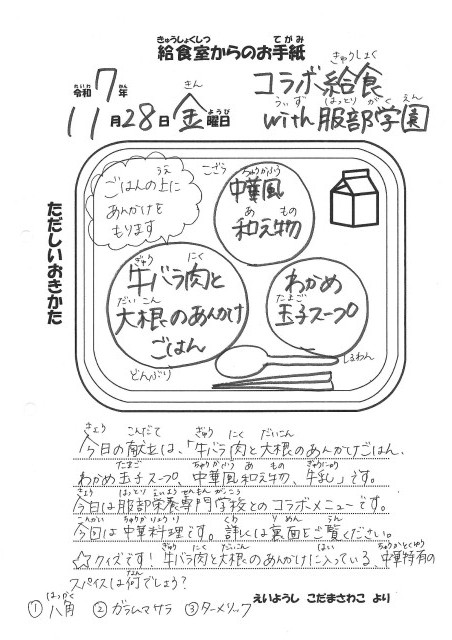 給食室からのお手紙
令和7年
11月28日金曜日
コラボ給食
with服部学園
ただしいおきかた
ごはんの上に
あんかけを
もります
こざら
中華風
和え物
牛バラ肉と
大根のあんかけ
ごはん
どんぶり
わかめ
玉子スープ
しるわん
今日の献立は、「牛バラ肉と大根のあんかけごはん、
わかめ玉子スープ、中華風和え物、牛乳」です。
今日は服部栄養専門学校とのコラボメニューです。
今回は中華料理です。詳しくは裏面をご覧ください。
☆クイズです!牛バラ肉と大根のあんかけに入っている、中華特有の
スパイスは何でしょう?
①八角 ②ガラムマサラ ③ターメリック
えいようし こだまさわこ より